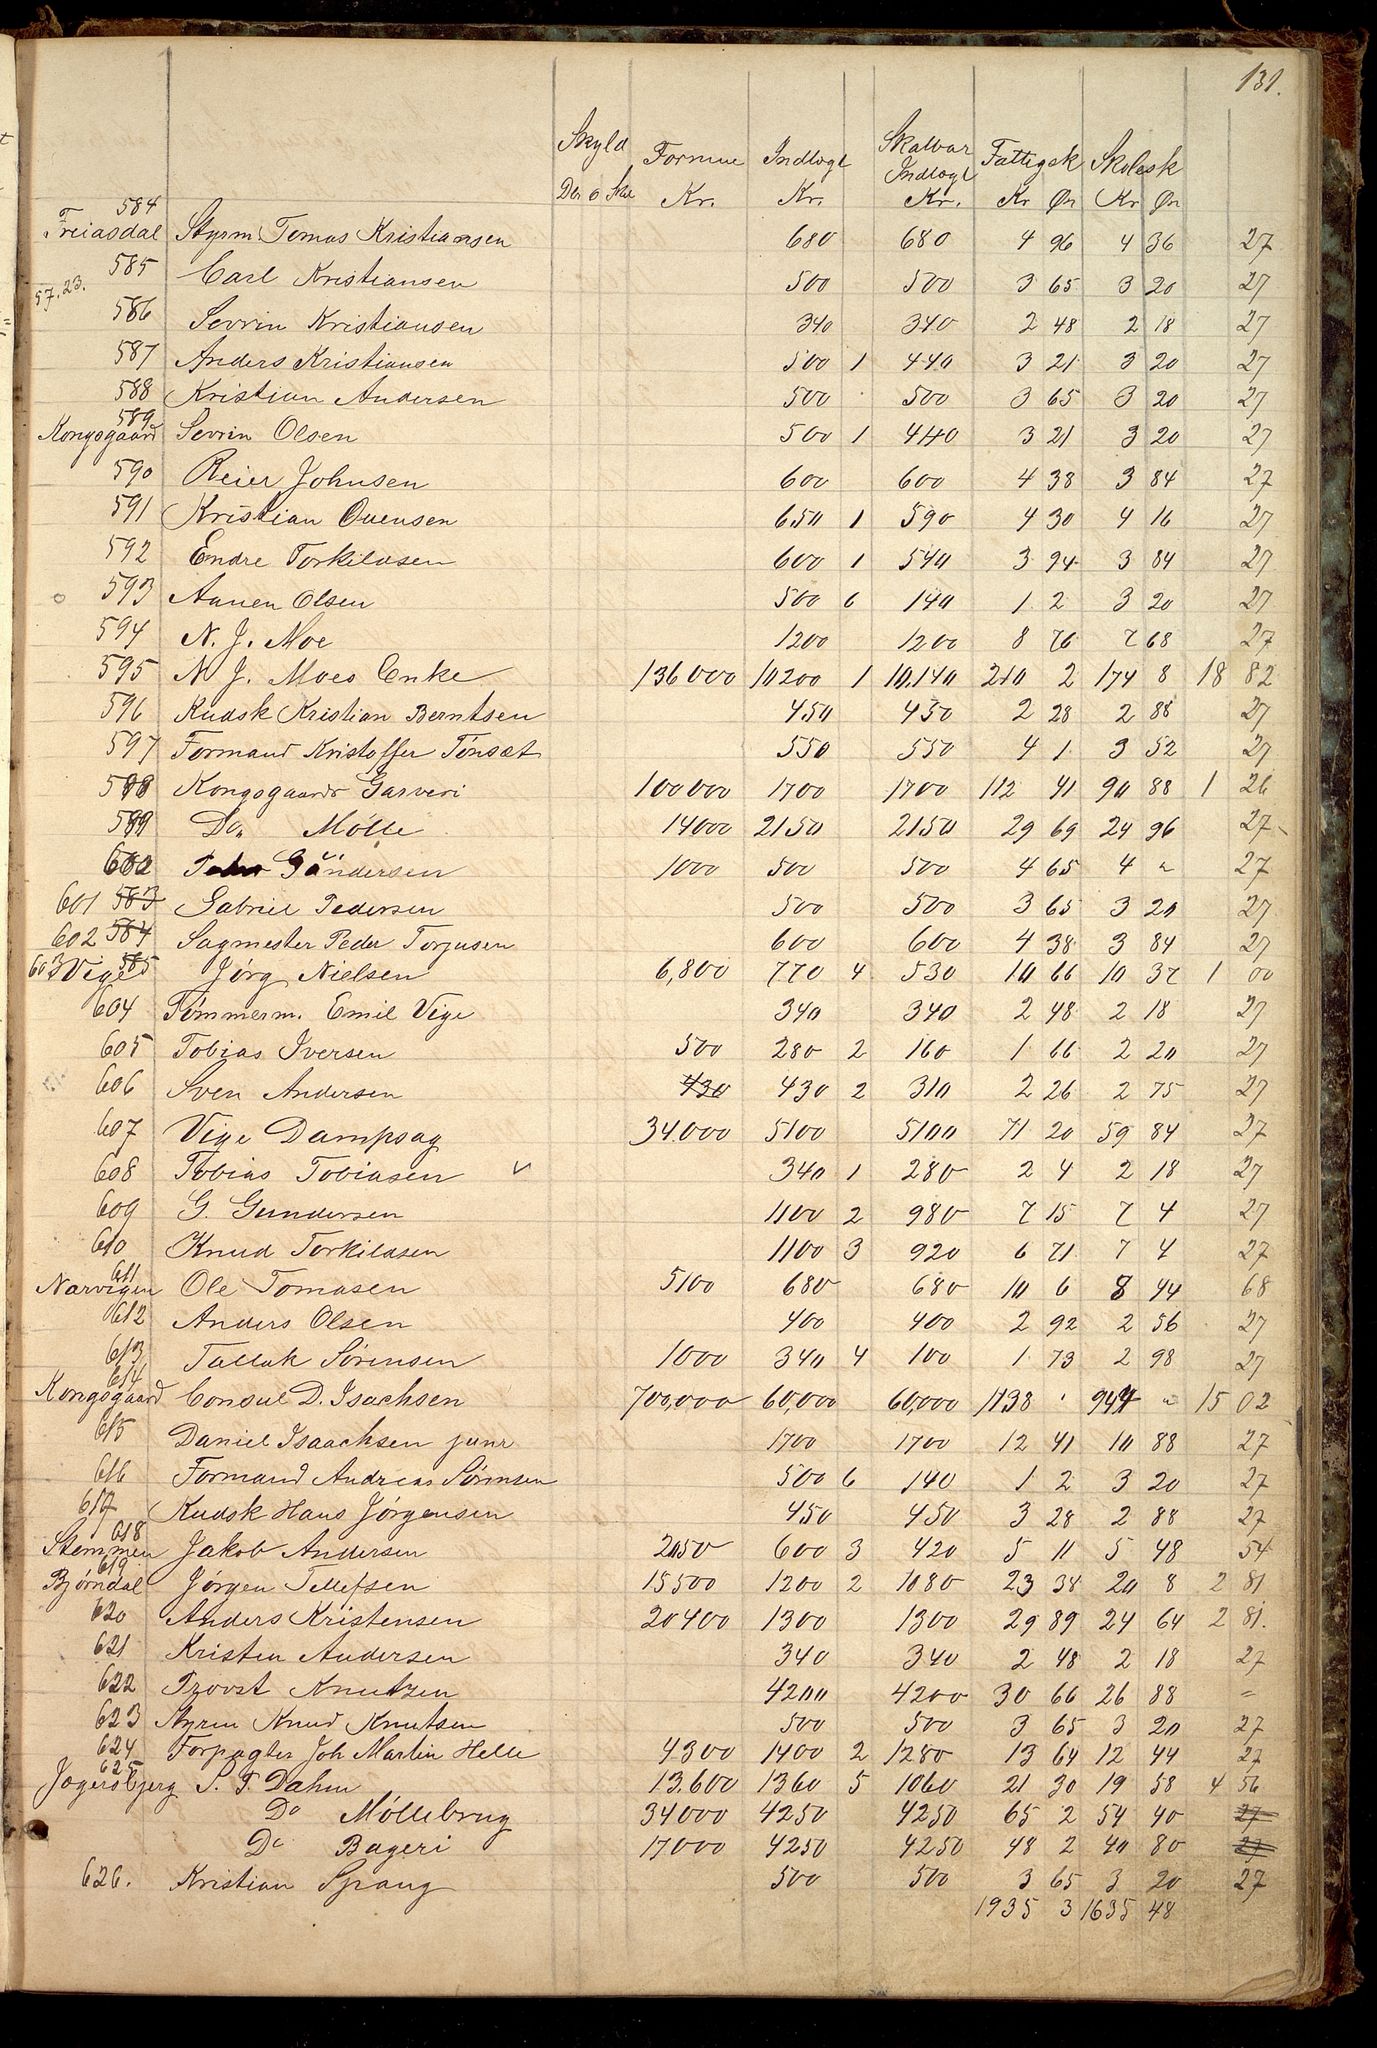 131.
Skyld Formue Indtægt Skatbar Indtægt Fattigsk Skolesk
Kr. Kr. Kr. Kr Ør Kr Ør
584
Freiasdal Styrm. Tomas Kristiansen 680 680 4 96 4 36 27
585 Carl Kristiansen 500 500 3 65 3 20 27
57.23.
586 Sevrin Kristiansen 340 340 2 48 2 18 27
587 Anders Kristiansen 500 1 440 3 21 3 20 27
588 Kristian Andersen 500 500 3 65 3 20 27
589
Kongsgaard Sevrin Olsen 500 1 440 3 21 3 20 27
590 Reier Johnsen 600 600 4 38 3 84 27
591 Kristian Ouensen 650 1 590 4 30 4 16 27
592 Endre Torkildsen 600 1 540 3 94 3 84 27
593 Aanen Olsen 500 6 140 1 2 3 20 27
594 N. J. Moe 1200 1200 8 76 7 68 27
595 N. J. Moes Enke 136000 10200 1 10,140 210 2 174 8 18 82
596 Kudsk Kristian Berntsen 450 450 2 28 2 88 27
597 Formand Kristoffer Tönsæt 550 550 4 1 3 52 27
598 Kongsgaards Garveri 100000 1700 1700 112 41 90 88 1 26
599 Do Mölle 14000 2150 2150 29 69 24 96 27
600 Gundersen 1000 500 500 4 65 4 " 27
601 583 Gabriel Pedersen 500 500 3 65 3 20 27
602 584 Sagmester Peder Torjusen 600 600 4 38 3 84 27
603 Vige 585 Jörg Nielsen 6,800 770 4 530 10 66 10 37 1 00
604 Tömmerm. Emil Vige 340 340 2 48 2 18 27
605 Tobias Iversen 500 280 2 160 1 66 2 20 27
606 Sven Andersen 430 430 2 310 2 26 2 75 27
607 Vige Dampsag 34000 5100 5100 71 20 59 84 27
608 Tobias Tobiasen v 340 1 280 2 4 2 18 27
609 G. Gundersen 1100 2 980 7 15 7 4 27
610 Knud Torkildsen 1100 3 920 6 71 7 4 27
611
Narvigen Ole Tomasen 5100 680 680 10 6 8 44 68
612 Anders Olsen 400 400 2 92 2 56 27
613 Tallak Sörensen 1000 340 4 100 1 73 2 98 27
614
Kongsgaard Consul D. Isachsen 700,000 60,000 60,000 1138 " 944 " 15 02
615 Daniel Isaachsen junr 1700 1700 12 41 10 88 27
616 Formand Andreas Sörensen 500 6 140 1 2 3 20 27
617 Kudsk Hans Jörgensen 450 450 3 28 2 88 27
618
Stemmen Jakob Andersen 2050 600 3 420 5 11 5 48 54
619
Bjørndal Jörgen Tellefsen 15500 1200 2 1080 23 38 20 8 2 81
620 Anders Kristensen 20400 1300 1300 29 89 24 64 2 81.
621 Kristen Andersen 340 340 2 48 2 18 27
622 Provst Knutzen 4200 4200 30 66 26 88 =
623 Styrm Knud Knutsen 500 500 3 65 3 20 27
624 Forpagter Joh Martin Helle 4300 1400 2 1280 13 64 12 44 27
625
Jegersbjerg S. T. Dahm 13.600 1360 5 1060 21 30 19 58 4 56
Do Möllebrug 34000 4250 4250 65 2 54 40 27
Do Bageri 17000 4250 4250 48 2 40 80 27
626. Kristian Spang 500 500 3 65 3 20 27
1935 3 1635 48